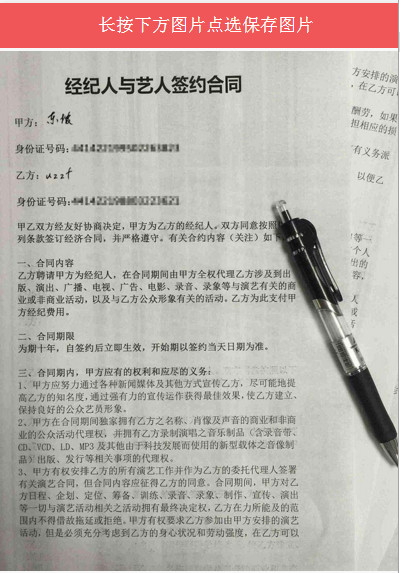 长按下方图片点选保存图片
经纪人与艺人签约合同
甲方：
身份证号码：
乙方：uzzt
身份证号码：
甲乙双方经友好协商决定，甲方为乙方的经纪人。双方同意按照
列条款签订经济合同，并严格遵守。有关合约内容（关注）如下
一、合同内容
乙方聘请甲方为经纪人，在合同期间由甲方全权代理乙方涉及到出
版、演出、广播、电视、广告、电影、录音、录象等与演艺有关的商
业或非商业活动，以及与乙方公众形象有关的活动。乙方为此支付甲
方经纪费用。
二、合同期限
为期十年，自签约后立即生效，开始期以签约当天日期为准。
三、合同期内，甲方应有的权利和应尽的义务：
1、甲方应努力通过各种新闻媒体及其他方式宣传乙方，尽可能地提
高乙方的知名度，通过强有力的宣传运作获得最佳效果，使乙方建立、
保持良好的公众艺员形象。
2、甲方在合同期间独家拥有乙方之名称、肖像及声音的商业和非商
业的公众活动代理权，并拥有乙方录制演唱之音乐制品（含录音带、
CD、VCD、LD、MP3及其他由于科技发展而使用的新型载体之音像制
品）出版、发行等相关事项的代理权。
3、甲方有权安排乙方的所有演艺工作并作为乙方的委托代理人签署
有关演艺合同，但合同内容应征得乙方的同意。合同期间，甲方对乙
方日程、企划、定位、筹备、训练、录音、录象、制作、宣传、演出
等一切与演艺活动相关之活动拥有最终决定权，乙方在力所能及的范
围内不得借故拖延或拒绝。甲方有权要求乙方参加由甲方安排的演艺
活动，但是必须充分考虑到乙方的身心状况和劳动强度，在乙方可以
方安排的演
，在乙方可
酬劳，如果
担相应的损
有义务派
以使乙